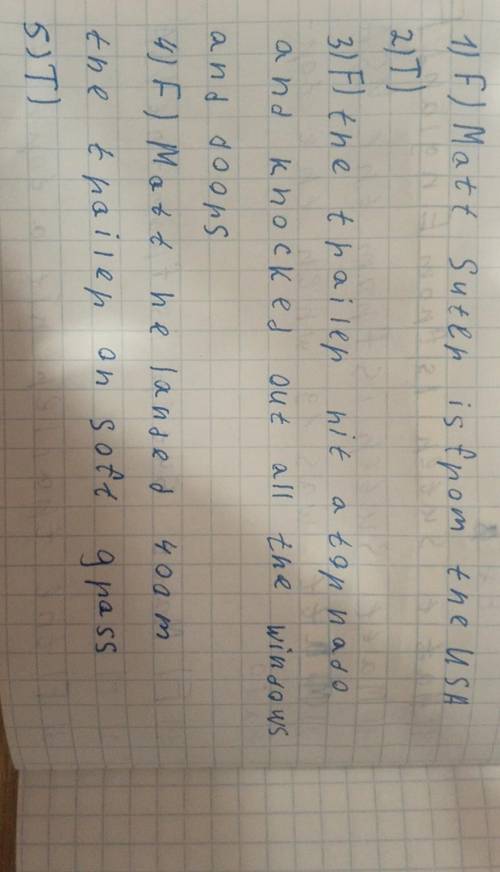 1) F) Matt Suter is from the USA
2) T)
3) F) the trailer hit a tornado
and knocked out all the windows
and doors
4) F) Matt he landed 400m
the trailer on soft grass
5) T)